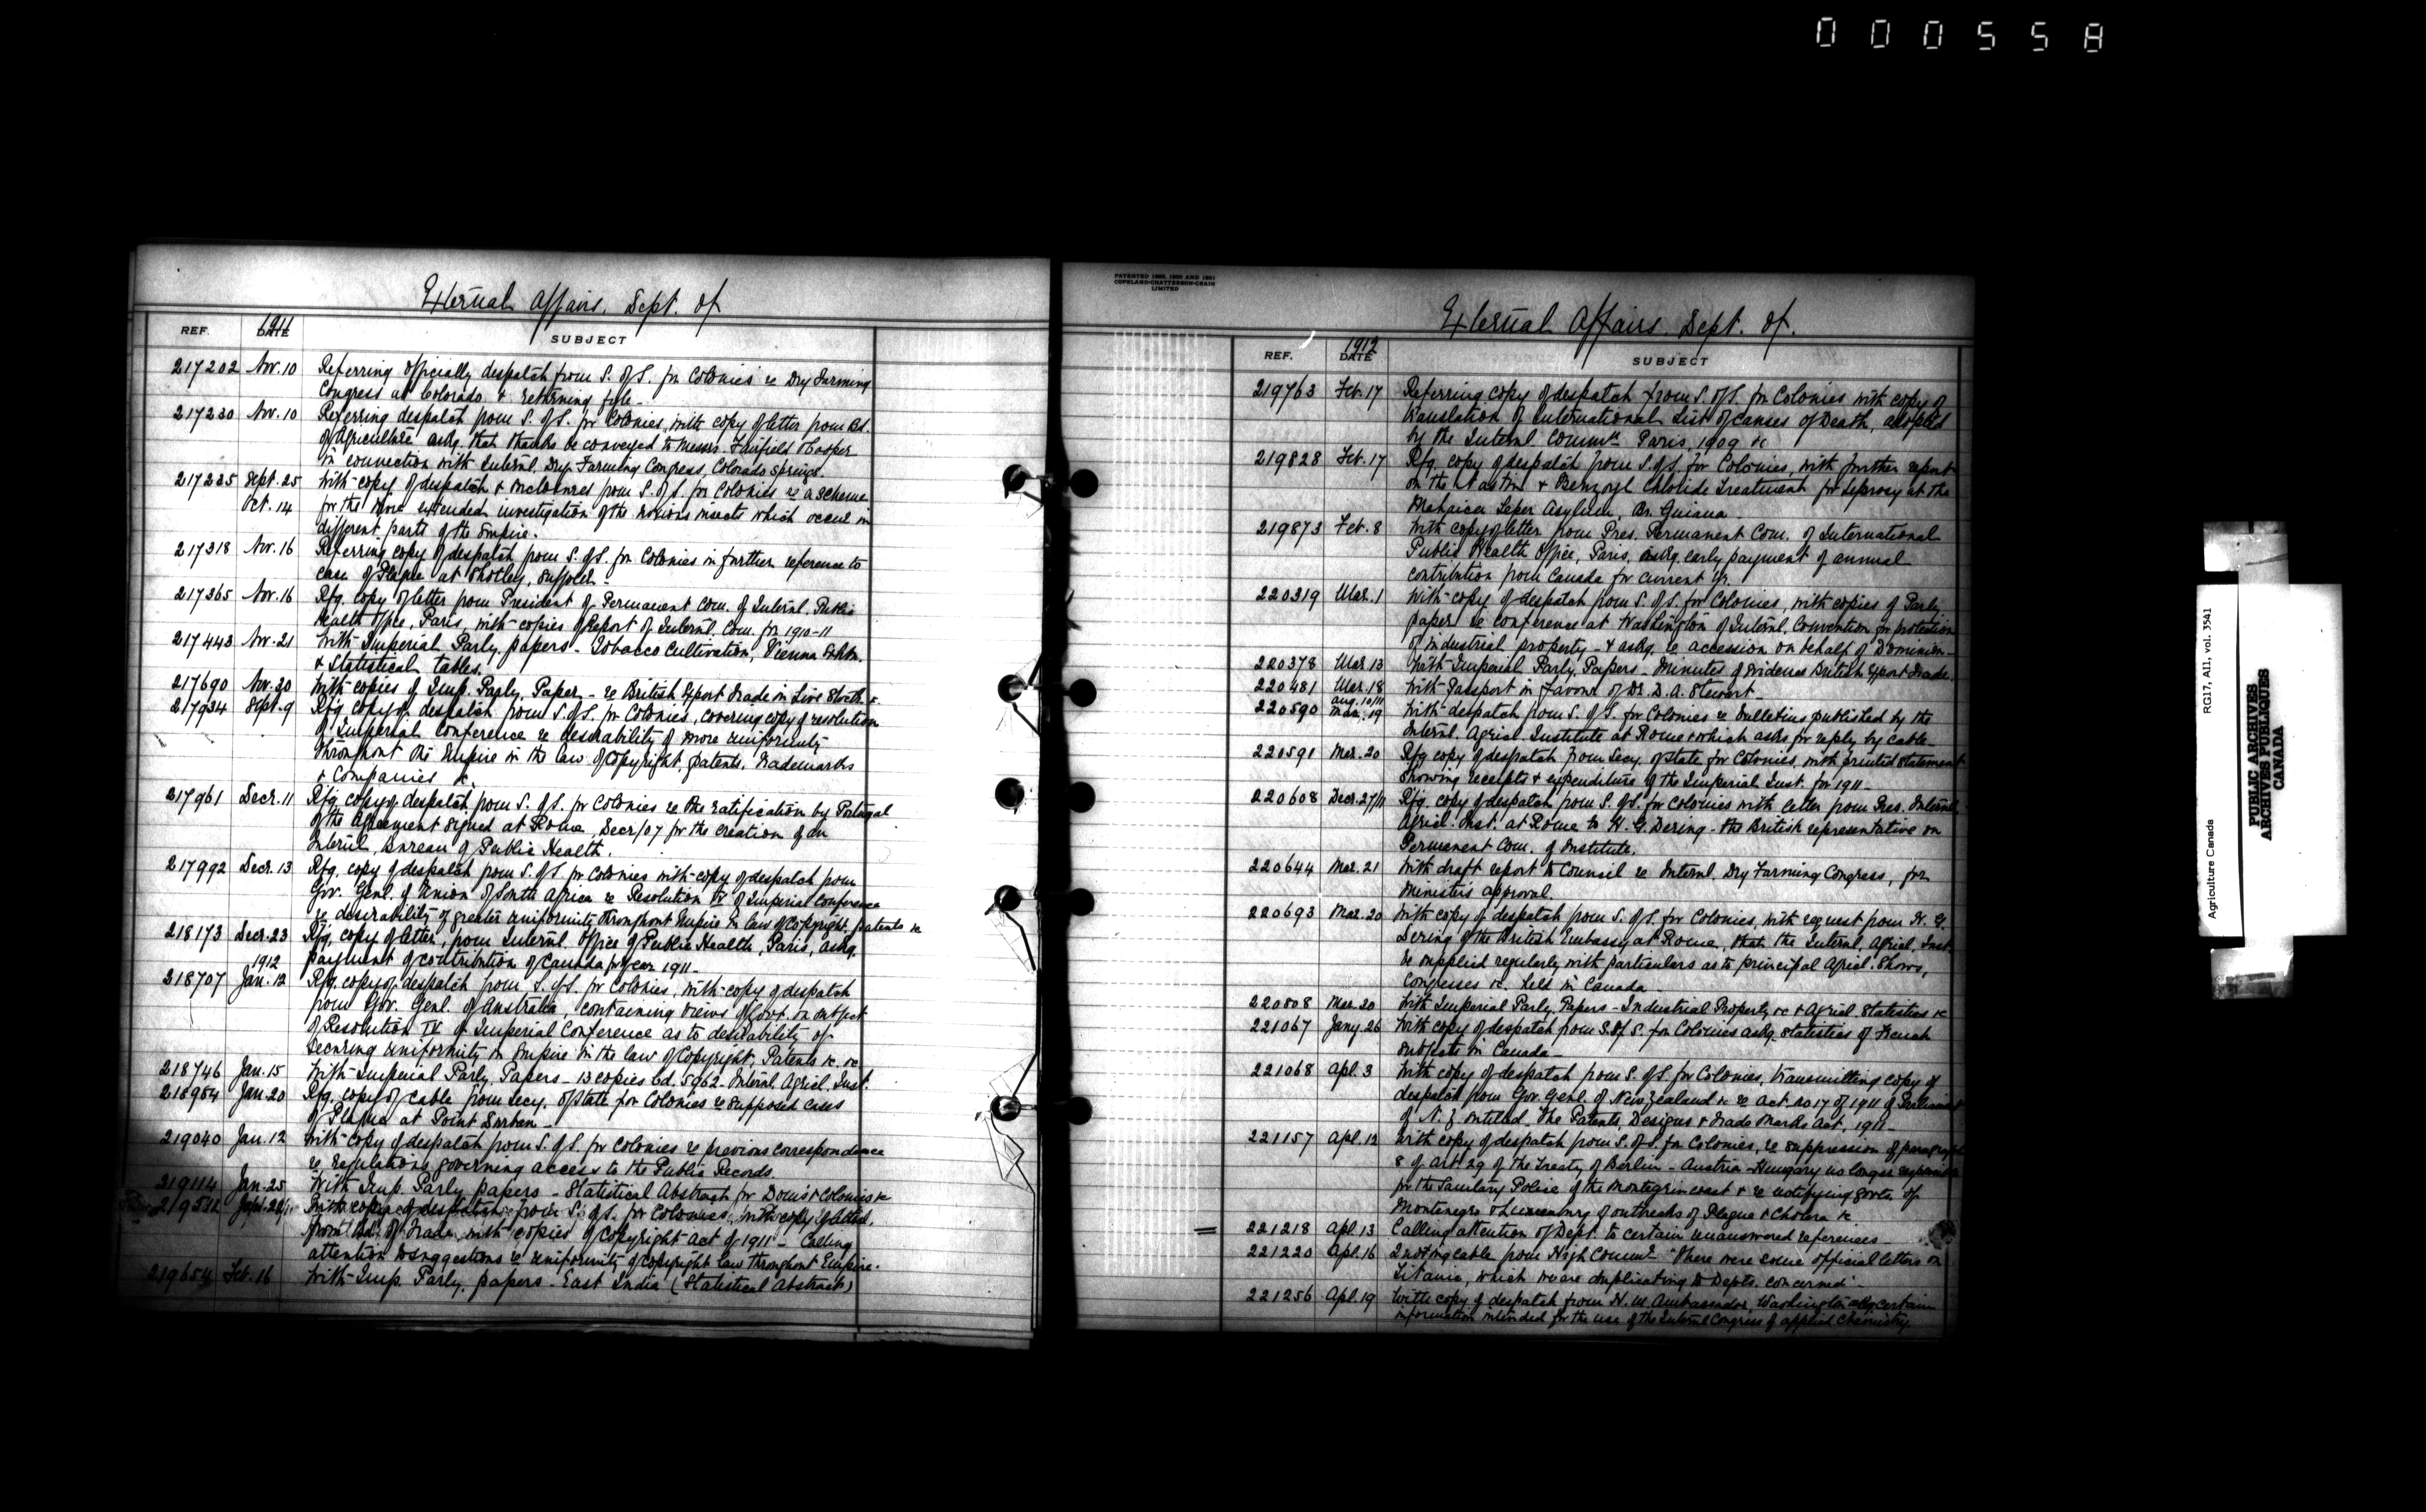 000558
External Affairs, Dept. of
REF. DATE SUBJECT
1911
217202 Nov. 10 Referring officially despatch from S. of S. for Colonies re Dry Farming
Congress at Colorado & returning file -
217230 Nov. 10 Referring despatch from S. of S. for Colonies, with copy of letter from Bd.
of Agriculture askg. that thanks be conveyed to Messrs. Fairfield & Cooper
in connection with Internl. Dry Farming Congress, Colorado Springs.
217235 Sept. 25 With copy of despatch & inclosures from S. of S. for Colonies re a scheme
Oct. 14 for the more extended investigation of the noxious insects which occur in
different parts of the Empire.
217318 Nov. 16 Referring copy of despatch from S. of S. for Colonies in further reference to
case of Plague at Shotley, Suffolk -
217365 Nov. 16 Rfg. copy of letter from President of Permanent Com. of Internl. Public
Health Office, Paris, with copies of Report of Internl. Com. for 1910-11
217443 Nov. 21 With Imperial Parly. papers - Tobacco Cultivation, Vienna Exhbn.
& Statistical tables.
217690 Nov. 30 With copies of Imp. Parly. Paper - re British Export Trade in Live Stock &
217934 Sept. 9 Rfg copy of despatch from S. of S. for Colonies, covering copy of resolution
of Imperial Conference re desirability of more uniformity
throughout the Empire in the law of Copyright, patents, trademarks
& Companies &c
217961 Decr. 11 Rfg. copy of despatch from S. of S. for Colonies re the ratification by Portugal
of the Agreement signed at Rome, Decr/07 for the creation of an
Internl. Bureau of Public Health.
217992 Decr. 13 Rfg. copy of despatch from S. of S. for Colonies with copy of despatch from
Gov. Genl. of Union of South Africa re Resolution IV of Imperial Conference
re desirability of greater uniformity throughout Empire in law of Copyright, patents &c
218173 Decr. 23 Rfg. copy of letter, from Internl. Office of Public Health, Paris, askg.
payment of contribution of Canada for year 1911 -
1912
218707 Jan. 12 Rfg. copy of despatch from S. of S. for Colonies, with copy of despatch
from Gov. Genl. of Australia, containing views of Govt. on subject
of Resolution IV of Imperial Conference as to desirability of
securing uniformity in Empire in the law of Copyright, Patents &c. &c
218746 Jan. 15 With Imperial Parly. Papers - 13 copies Cd. 5962 - Internl. Agricl. Inst.
218954 Jan. 20 Rfg. copy of cable from Secy. of State for Colonies re supposed cases
of Plague at Point Durban -
219040 Jan. 12 With copy of despatch from S. of S. for Colonies re previous correspondence
re regulations governing access to the Public Records.
219114 Jan. 25 With Imp. Parly papers - Statistical Abstract for Doms & Colonies &c
With copy of despatch from S. of S. for Colonies, with copy of letter
from Bd. of Trade, with copies of Copyright Act of 1911 - Calling
attention to suggestions re uniformity of copyright law throughout Empire.
219654 Feb. 16 With Imp. Parly. papers - East India (Statistical Abstract)
PATENTED 1899, 1900 AND 1901
COPELAND-CHATTERSON-CRAIN
LIMITED
External Affairs, Dept. of.
REF. DATE SUBJECT
1912
219763 Feb. 17 Referring copy of despatch from S. of S. for Colonies with copy of
translation of International List of Causes of Death, adopted
by the Internl. Commn. Paris, 1909 &c
219828 Feb. 17 Rfg. copy of despatch from S. of S. for Colonies, with further report
on the Nastin & Benzoyl Chloride Treatment for Leprosy at the
Mahaica Leper Asylum, Br. Guiana -
219873 Feb. 8 With copy of letter from Pres. Permanent Com. of International
Public Health Office, Paris, askg. early payment of annual
contribution from Canada for current yr.
220319 Mar. 1 With copy of despatch from S. of S. for Colonies, with copies of Parly.
paper re conference at Washington of Internl. Convention for protection
of industrial property - & askg. re accession on behalf of Dominion -
220378 Mar. 13 With Imperial Parly. Papers - Minutes of Evidence British Export Trade.
220481 Mar. 18 With Passport in favour of Dr. D. A. Stewart -
Aug. 10/11
220590 Mar. 19 With despatch from S. of S. for Colonies re bulletins published by the
Internl. Agricl Institute at Rome & which asks for reply by cable -
220591 Mar. 20 Rfg copy of despatch from Secy. of State for Colonies, with printed Statement
showing receipts & expenditure of the Imperial Inst. for 1911 -
220608 Decr. 27/11 Rfg. copy of despatch from S. of S. for Colonies with letter from Pres. Internl.
Agricl. Inst. at Rome to H. G. Dering - the British representative on
Permanent Com. of Institute.
220644 Mar. 21 With draft report to Council re Internl. Dry Farming Congress, for
Minister's approval.
220693 Mar. 20 With copy of despatch from S. of S. for Colonies, with request from H. G.
Dering of the British Embassy at Rome, that the Internl. Agricl. Inst.
be supplied regularly with particulars as to principal Agricl. Shows,
Congresses &c. held in Canada -
220808 Mar. 20 With Imperial Parly. Papers - Industrial Property &c & Agricl. Statistics &c
221067 Jany. 26 With copy of despatch from S. of S. for Colonies askg. statistics of French
subjects in Canada -
221068 Apl. 3 With copy of despatch from S. of S. for Colonies, transmitting copy of
despatch from Gov. Genl. of New Zealand &c re Act. No 17 of 1911 of Parliament
of N. Z. entitled. The Patents, Designs & Trade Marks Act, 1911 -
221157 Apl. 12 With copy of despatch from S. of S. for Colonies, re suppression of paragraph
8 of Art. 29 of the Treaty of Berlin - Austria-Hungary no longer responsible
for the Sanitary Police of the Montegrin coast & re notifying Govts. of
Montenegro & Luxemburg of outbreaks of Plague & Cholera &c
221218 Apl. 13 Calling attention of Dept. to certain unanswered references -
221220 Apl. 16 Quoting cable from High Commr. "There were some official letters on
Titanic, which we are duplicating to Depts. concerned" -
221256 Apl. 19 With copy of despatch from H. M. Ambassador, Washington askg certain
information intended for the use of the Internl Congress of applied Chemistry.
Agriculture Canada RG17, A11, vol. 3541
PUBLIC ARCHIVES
ARCHIVES PUBLIQUES
CANADA